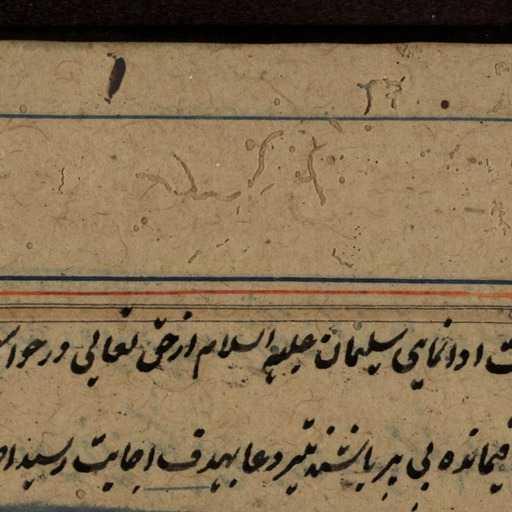 ت ادا نمایی سلیمان علیه السلام از حق تعالی درخوا
قیمانده بی بهر باشند تیر دعا بهدف اجابت رسید ا